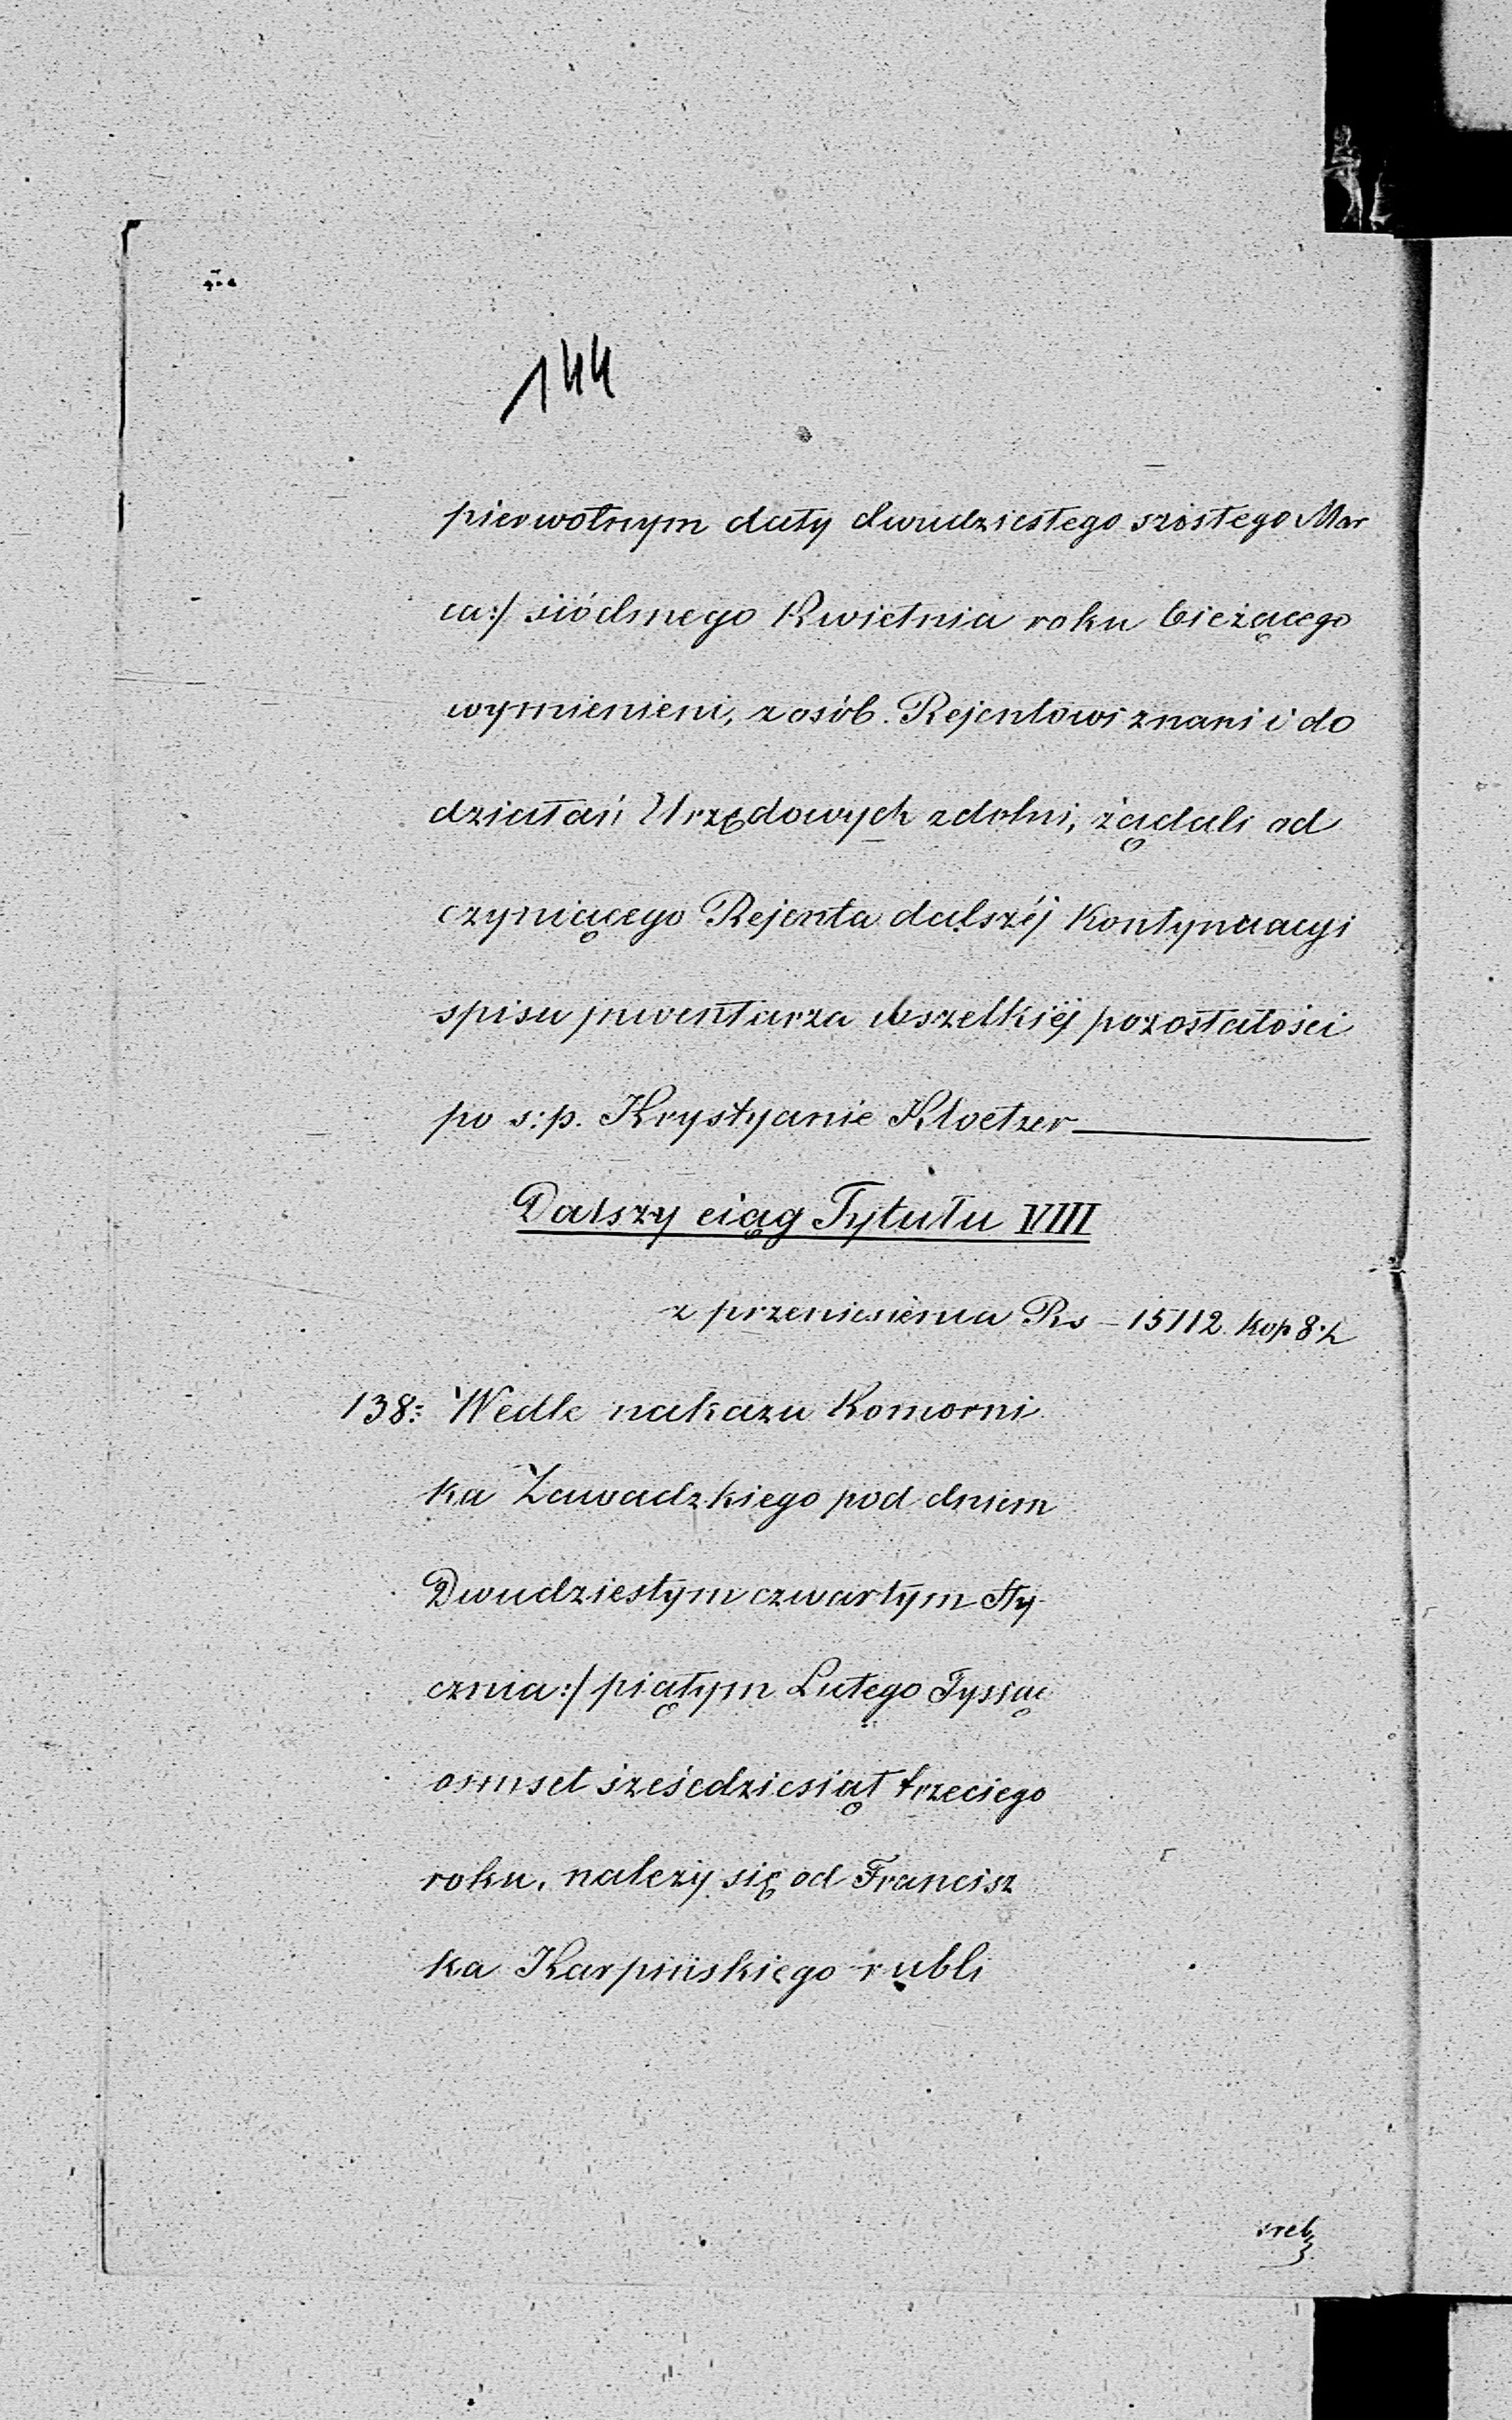 144
pierwotnym daty dwudziestego szóstego Mar
ca:/ siódmego Kwietnia roku bieżącego
wymienieni, z osób Rejentowi znani i do
działań Urzędowych zdolni, żądali od
czyniącego Rejenta dalszéj Kontynuacyi
spisu inwentarza wszelkiéj pozostałości
po s:p. Krystyanie Kloetzer
Dalszy ciąg Tytułu VIII
z przeniesienia Rs – 15112 kop 8½
138: Wedle nakazu Komorni
ka Zawadzkiego pod dniem
Dwudziestym czwartym Sty
cznia:/ piątym Lutego Tysiąc
osmset sześcdziesiąt trzeciego
roku, należy się od Francisz
ka Karpińskiego rubli
sreb